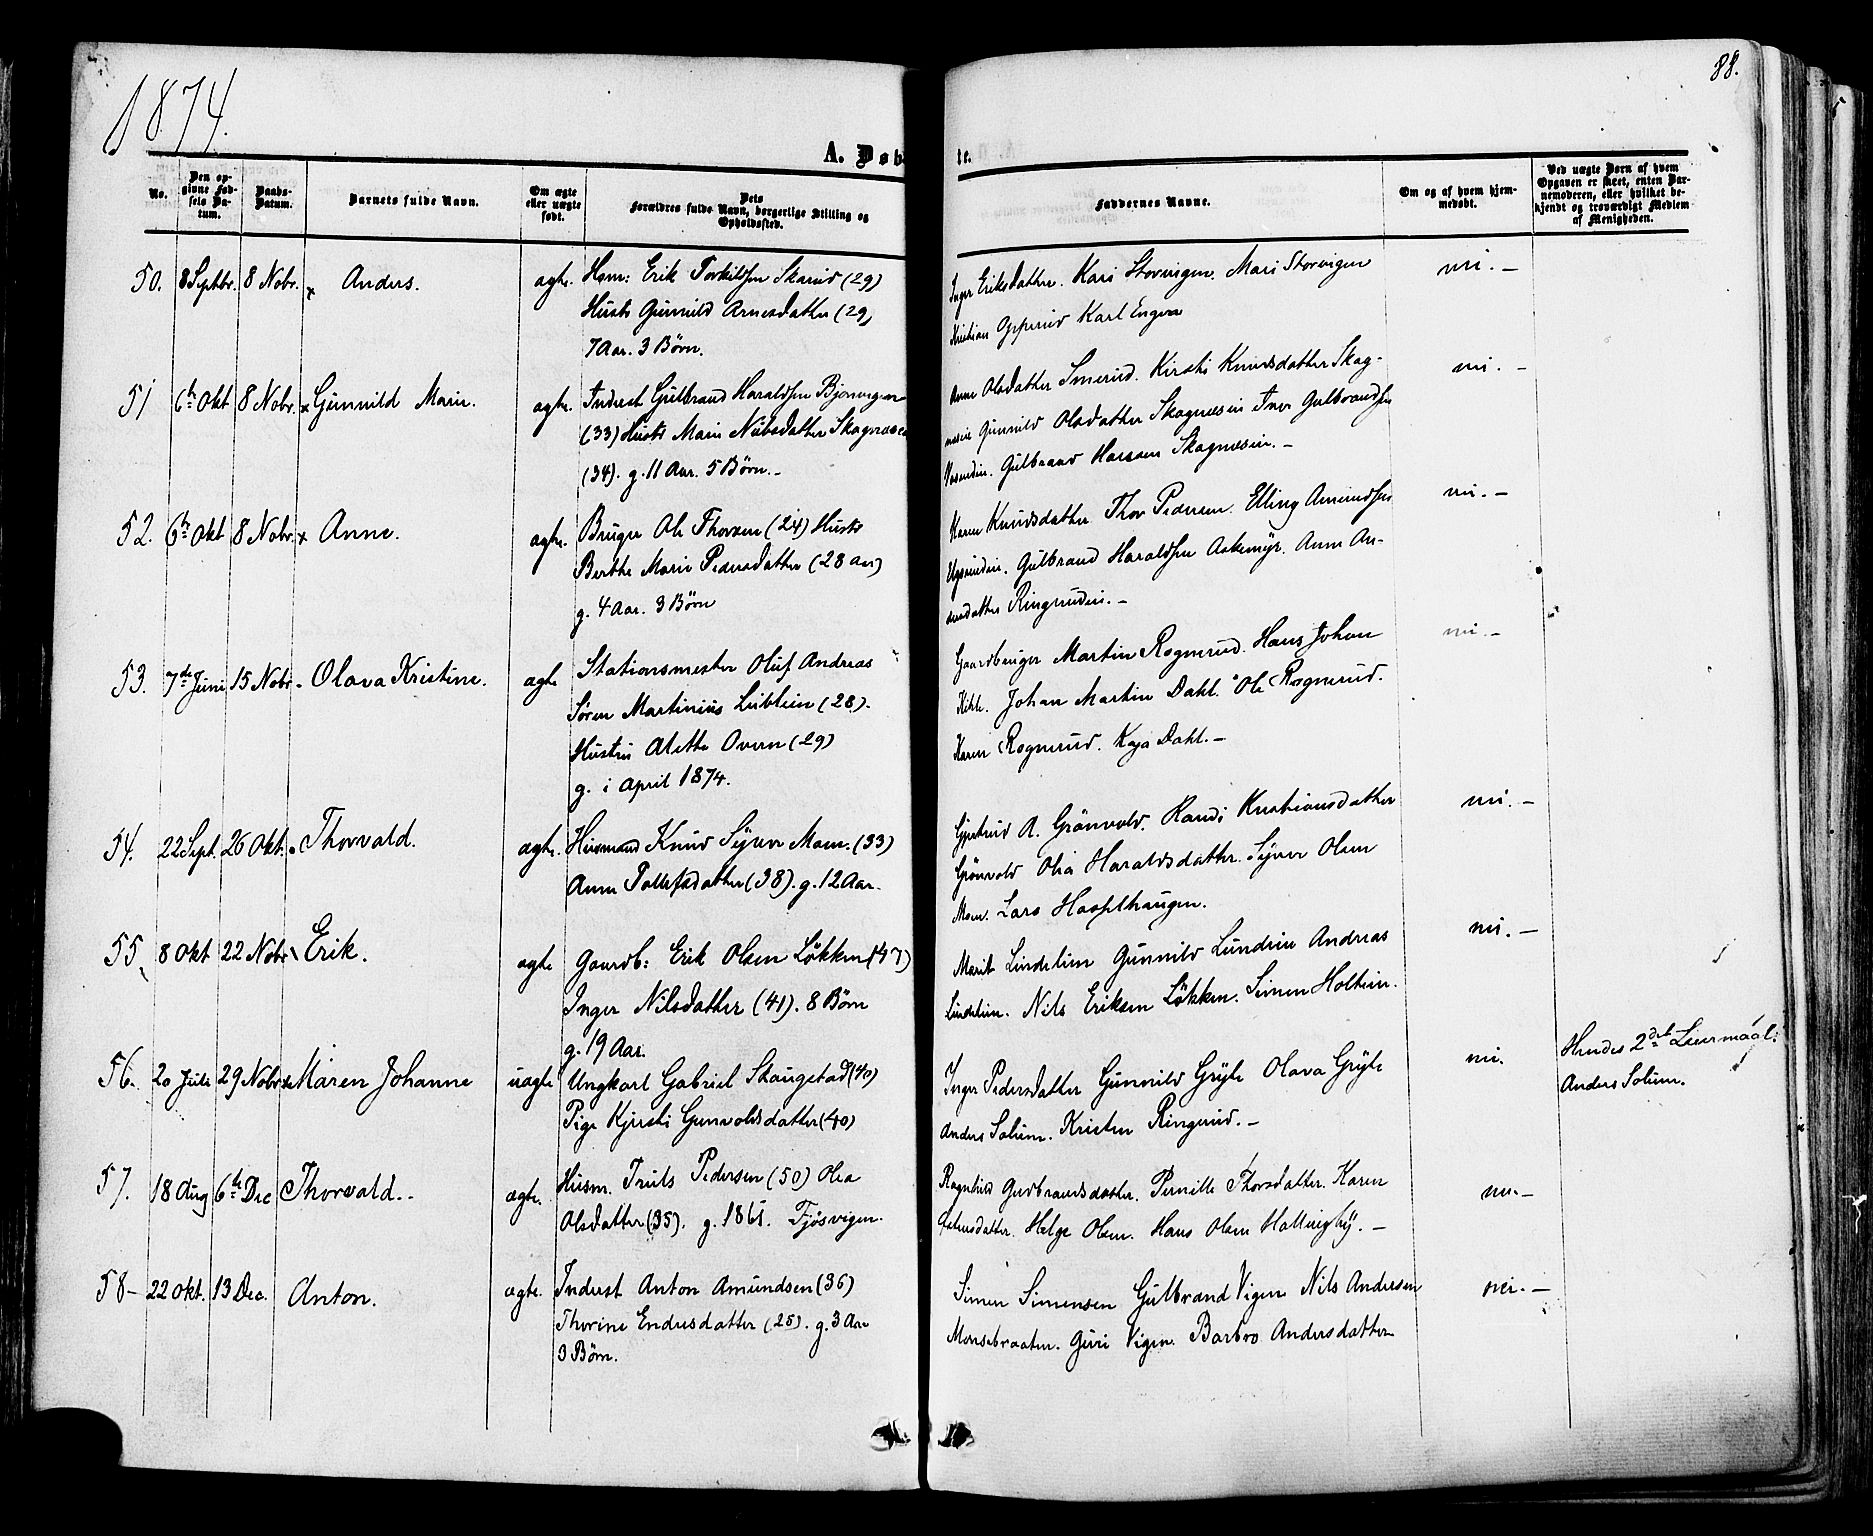 1874.
88.
A. Døb-
te.
No.
Den op-
givne Fød-
sels Da-
tum.
Daabs-
Datum.
Barnets fulde Navn.
Om ægte
eller uægte
født.
Dets
Forældres fulde Navn, borgerlige Stilling og
Opholdssted.
Faddernes Navne.
Om og af hvem hjem-
medøbt.
Ved uægte Børn af hvem
Opgaven er skeet, enten Bar-
nemoderen, eller hvilket be-
kjendt og troværdigt Medlem
af Menigheden.
50. 8 Septbr. 8 Nobr. x Anders. ægte. Hsm: Erik Torkildsen Skarud (29)
Hustr Gunnild Arnesdatter (29)
7 Aar. 3 Børn.
Inger Eriksdatter. Kari Storvigen. Mari Storvigen
Kristian Opperud Karl Engen
nei. –
51 6te Okt 8 Nobr. x Gunnild Marie. ægte. Inderst Gulbrand Haraldsen
(33) Hustr Marie Nilsdatter Skagnæs
(34). g. 11 Aar. 5 Børn. –
Anne Olsdatter Smerud. Kirsti Knudsdatter Skag-
næsei Gunnild Olsdatter Skagnæsei Iver Gulbrandsen
Gulbrand Hansen Skagnæsei. –
nei. –
52. 6te Okt 8 Nobr. x Anne. ægte. Bruger Ole Thorsen (24) Hustr
Berthe Marie Pedersdatter (28 aar)
g. 4 Aar. 3 Børn
Karen Knudsdatter Thor Pedersen. Elling Amundsen
Gulbrand Haraldsen Askemyr. Anne An-
dersdatter Ringerudei. –
nei. –
53. 7de Juni 15 Nobr. Olava Kristine. ægte Stationsmester Oluf Andreas
Søren Martinius Lüblein (28).
Hustru Alette Oveen (29)
g. i April 1874.
Gaardbruger Martin Rognerud. Hans Johan
Kihle. Johan Martin Dahl. Ole Rognerud.
Karen Rognerud. Kaja Dahl. –
nei. –
54. 22 Sept. 26 Okt. Thorvald. ægte. Husmand Knud Syver Moen. (33)
Anne Tollefsdatter (38). g. 12 Aar.
Gjertrud A. Grönvold. Randi Kristiansdatter
Grönvold Olia Haraldsdatter. Syver Olsen
Moen. Lars Hasselhaugen.
nei. –
55 8 Okt 22 Nobr Erik. ægte Gaardb: Erik Olsen Løkken (47)
Inger Nilsdatter (41). 8 Børn
g. 19 Aar.
Marit Lindelien Gunnild Lundein Andreas
Lindelien. Nils Eriksen Løkken. Simen Holtein.
nei. –
56. 20 Juli 29 Nobr. x Maren Johanne uægte Ungkarl Gabriel Skaugstad (40)
Pige Kjersti Gunvoldsdatter (40)
Inger Pedersdatter Gunnild Gryte Olava Gryte
Anders Solum. Kristen Ringerud. –
nei.
Hendes 2det Leiermaal:
Anders Solum.
57. 18 Aug 6te Dec Thorvald. ægte. Husm. Truls Pedersen (50) Olea
Olsdatter (35). g. 1861. Tjösvigen.
Ragnhild Gudbrandsdatter. Pernille Thorsdatter. Karen
Helge Olsen. Hans Olsen Hallingby. –
nei. –
58 – 22 Okt. 13 Dec. Anton. ægte. Inderst Anton Amundsen (36)
Thorine Endresdatter (25). g. 3 Aar
3 Børn.
Simen Simensen Gulbrand Vigen Nils Andersen
Monsebraaten. Guri Vigen. Barbro Andersdatter
nei. –